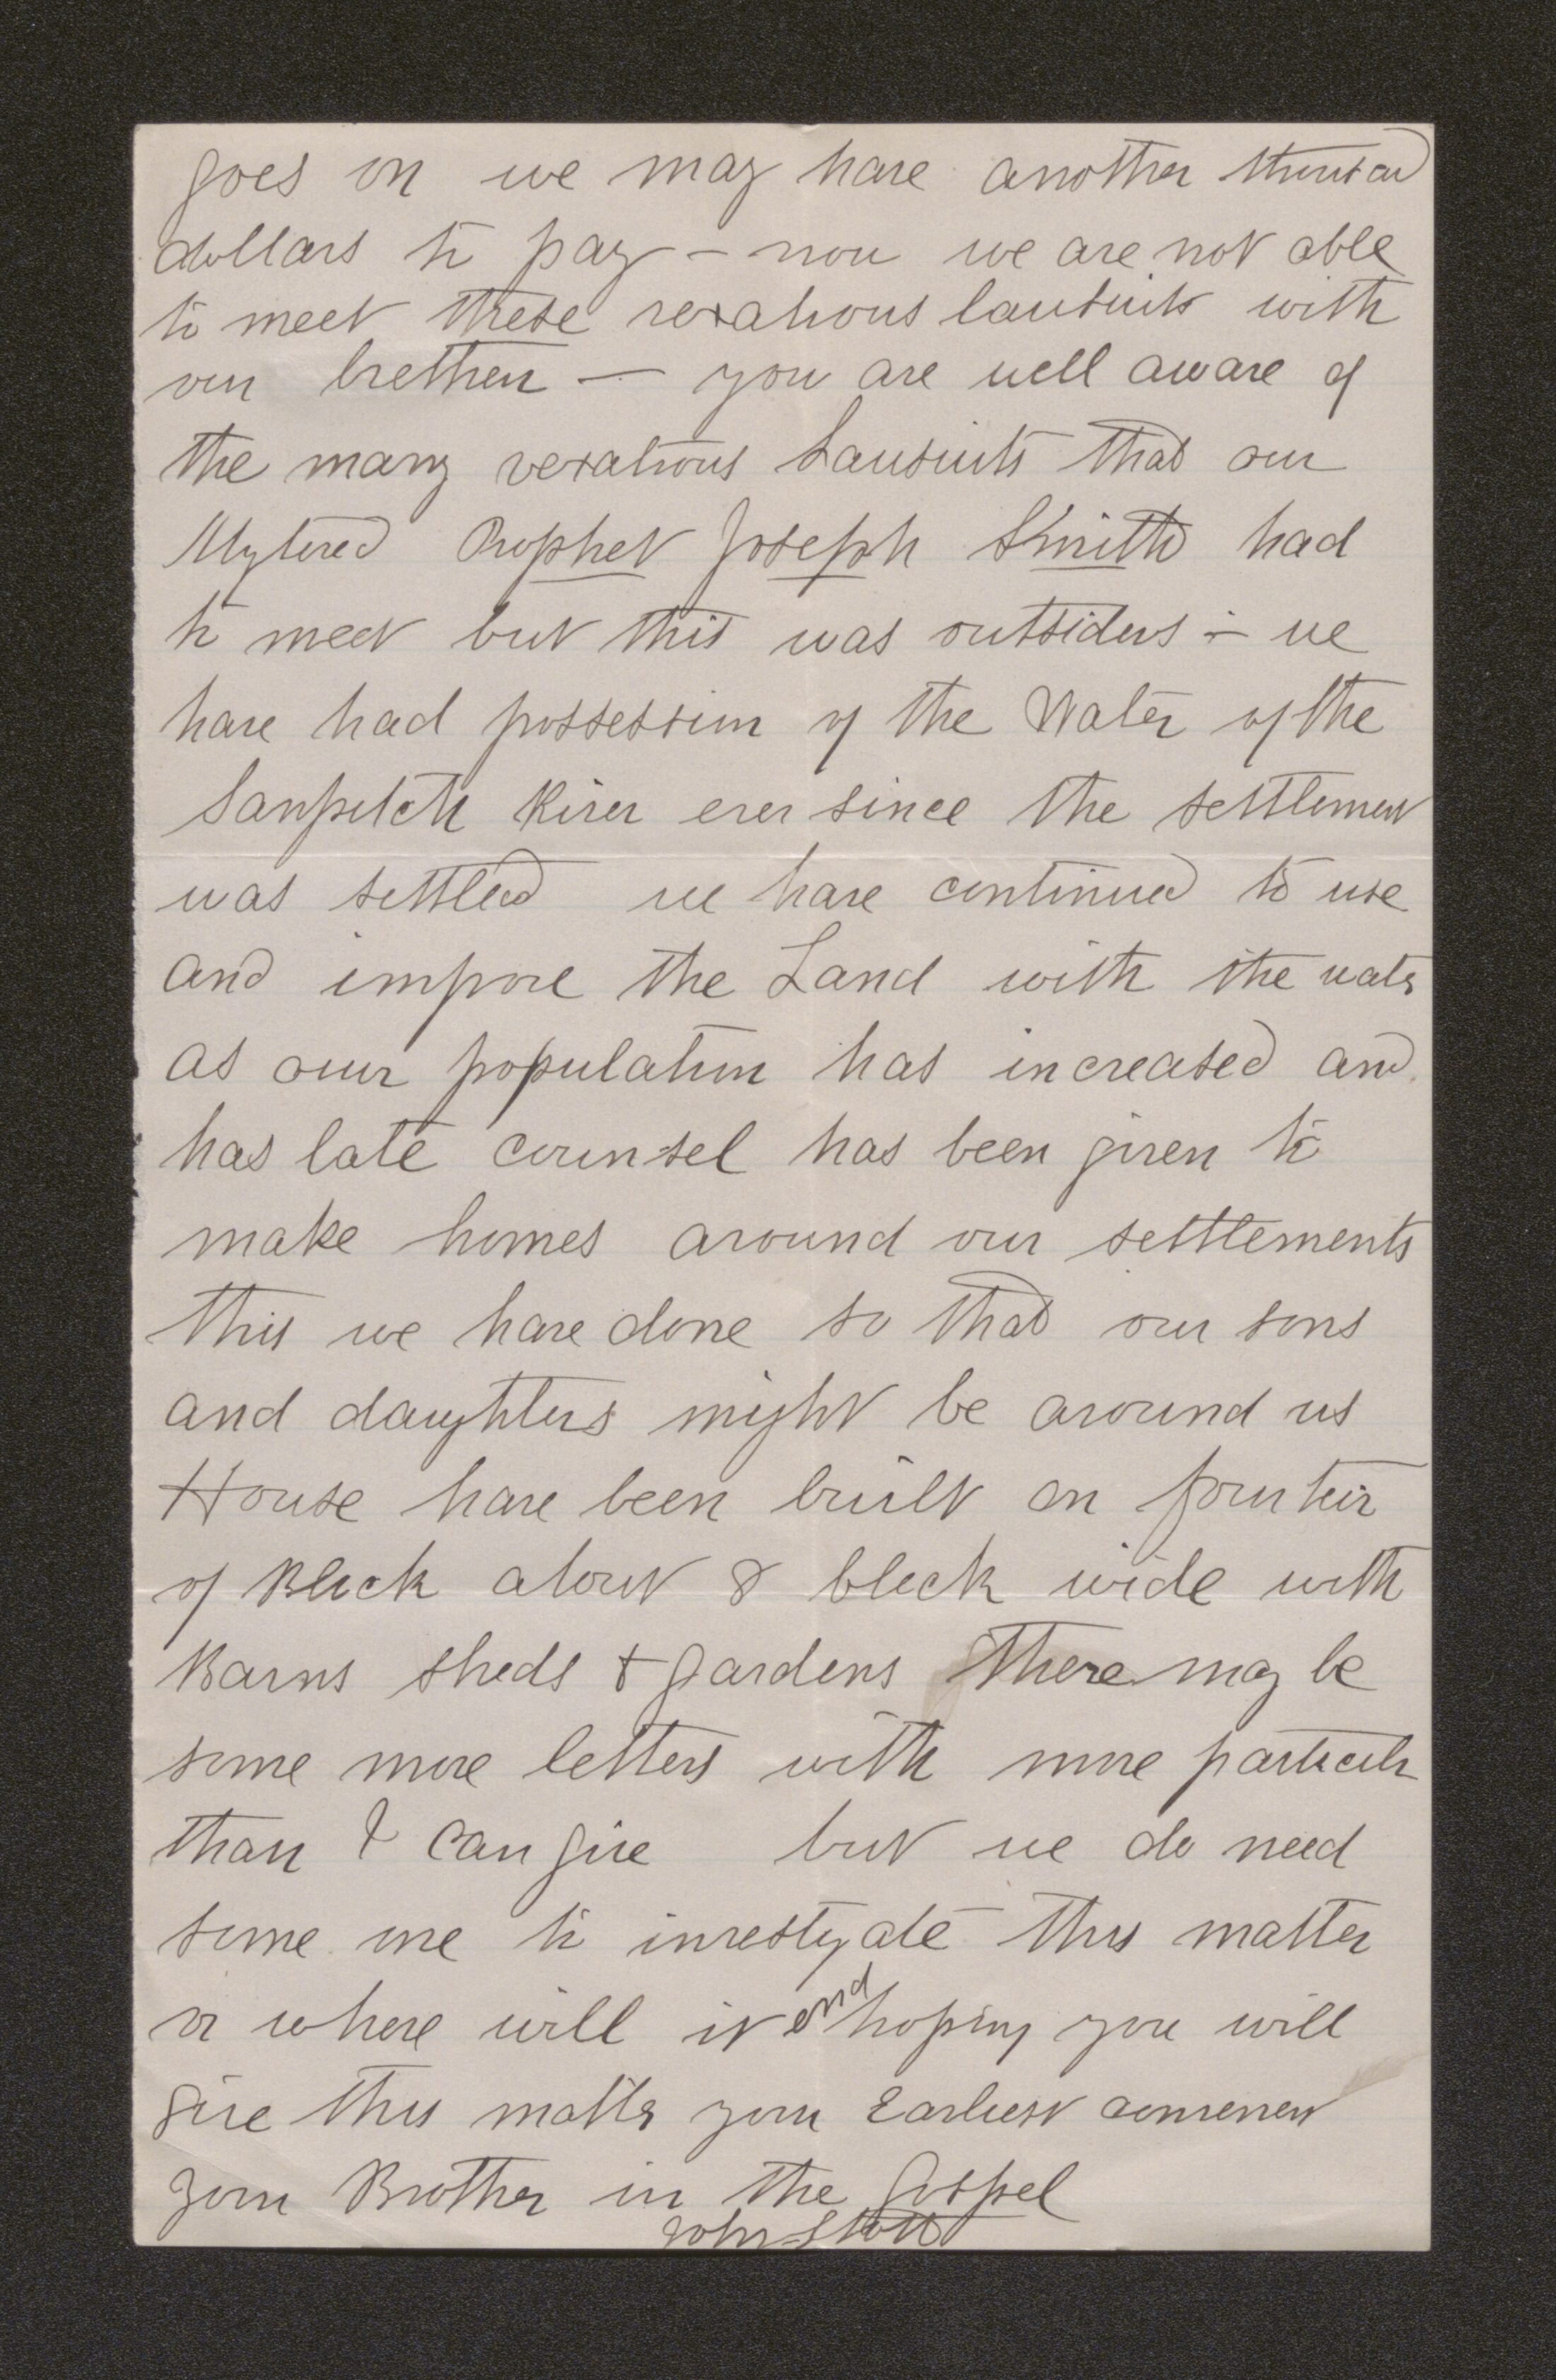 goes on we may have another thousand
dollars to pay – now we are not able
to meet these vexatious lawsuits with
our brethren — you are well aware of
the many vexatious Lawsuits that our
Mytered Prophet Joseph Smith had
to meet but this was outtsiders – we
have had possession of the Water of the
Sanpitch River ever since the settlement
was settled we have continued to use
and improve the Land with the water
as our population has increased and
has late counsel has been given to
make homes around our settlements
this we have done so that our sons
and daughters might be around us
House have been built on
of Block about 8 block wide with
Barns sheds & gardens there may be
some more letters with more particulr
than I can give but we do need
some one to investigate this matter
or where will it end hoping you will
give this matter your Earliest convenent
your Brother in the Gospel
John Stott